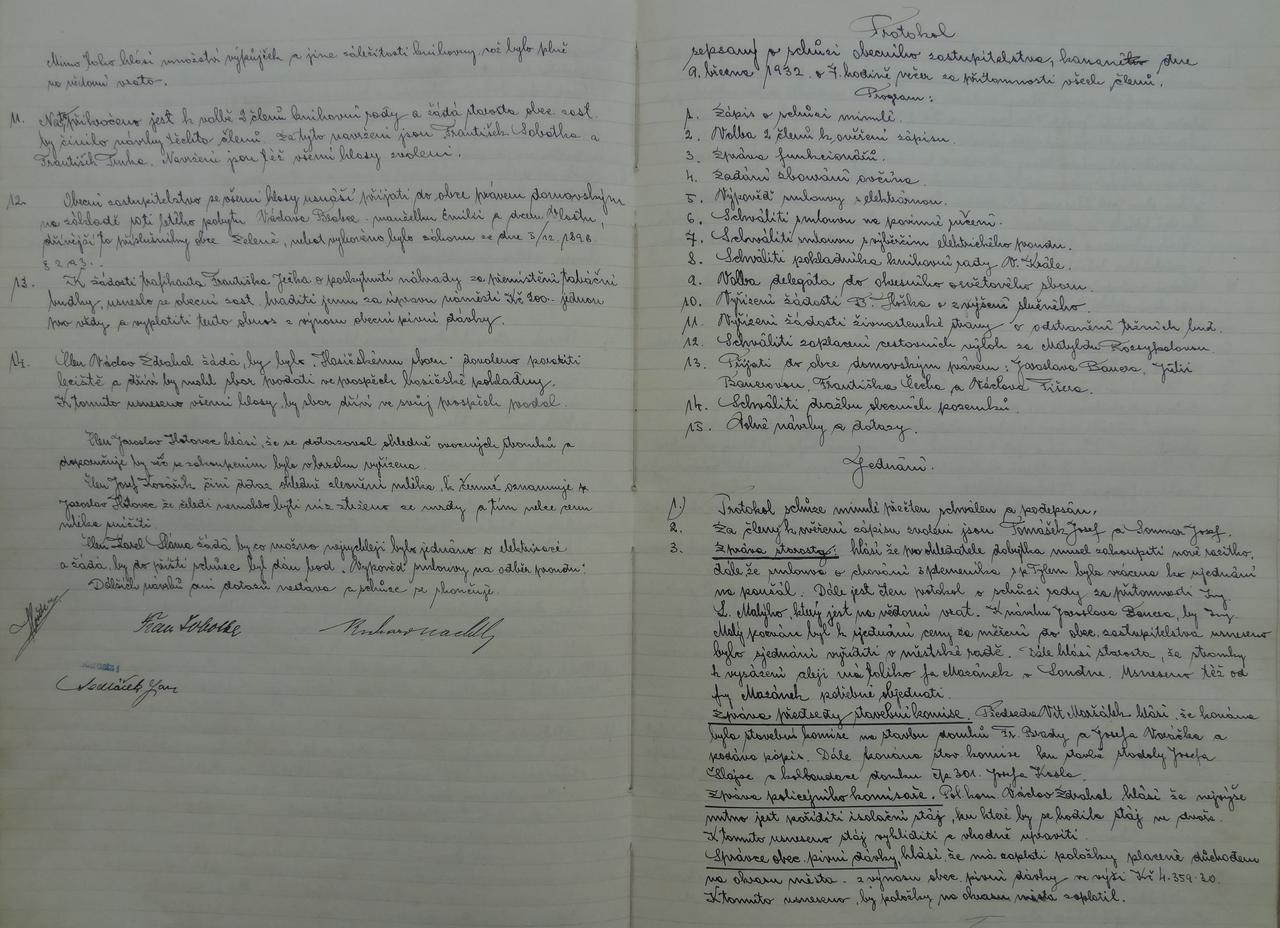 Mimo toho hlásí množství výpůjček a jiné záležitosti knihovny, což bylo plně
na vědomí vzato.
11. přikročeno jest k volbě 2 členů knihovní rady a žádá starosta obec. zast.
by činilo návrhy těchto členů. Za tyto navrženi jsou František Sobotka a
František Truha. Navržení jsou též všemi hlasy zvoleni.
12. Obecní zastupitelstvo se všemi hlasy usnáší přijati do obce právem domovským
na základě pobytu Václava manželku Emilii a dceru Vlastu
dřívější to příslušníky obce Zeleně, neboť vyhověno bylo zákonu ze dne 5/12. 1896.
§ 2 a 3.
13. K žádosti trafikanta Františka Ječka o poskytnutí náhrady za přemístění tabáční
budky, usneslo se obecní zast. hraditi jemu za úpravu náměstí Kč 200.- jednou
pro vždy a vyplatiti tento obnos z výnosu obecní pivní dávky.
14. Člen Václav Zdrahal žádá, by bylo Hasičskému sboru dovoleno pokáceti
lečiště a dříví by mohl sbor prodati ve prospěch hasičské pokladny.
K tomuto usneseno všemi hlasy, by sbor dříví ve svůj prospěch prodal.
Člen Jaroslav Hotovec hlásí, že se dotazoval ohledně ovocných stromků a
doporučuje by věc se zakoupením byla vbrzku vyřízena.
Člen Josef Kozářík činí dotaz ohledně zlevnění mléka, k čemuž oznamuje
Jaroslav Hotovec že čeledi nemohlo býti níž sníženo ze mzdy a tím nelze cenu
mléka snížiti.
Člen Karel Sláma žádá by co možno nejrychleji bylo jednáno o elektrisaci
a žádá, by do příští schůze byl dán bod. Výpověď smlouvy na odběr proudu.
Dalších návrhů ani dotazů nestává a schůze se skončuje.
Fran Sobotka
Sedláček Jan
Protokol
sepsaný o schůzi obecního zastupitelstva, konané dne
9. března 1932 o 7. hodině večer za přítomnosti všech členů.
Program:
1. Zápis o schůzi minulé.
2. Volba 2 členů k ověření zápisu.
3. Zpráva funkcionářů.
4. Zadání zbourání ovčína.
5. Výpověď smlouvy s elektrárnou.
6. Schváliti smlouvu na povinné ručení.
7. Schváliti smlouvu s výběrčím elektrického proudu.
8. Schváliti pokladníka knihovní rady V. Krále.
9. Volba delegáta do okresního osvětového sboru.
10. Vyřízení žádosti B. Hříška o zvýšení služného.
11. Vyřízení žádosti živnostenské strany o odstranění tržních bud.
12. Schváliti zaplacení cestovních výloh za Matyldu
13. Přijati do obce domovským právem: Jaroslava Bauera, Julii
Bauerovou, Františka Čecha a Václava Fišera.
14. Schváliti dražbu obecních pozemků.
15. Volné návrhy a dotazy.
Jednání.
1.) Protokol schůze minulé přečten schválen a podepsán.
2. Za členy k ověření zápisu zvoleni jsou Tomášek Josef a Sommer Josef.
3. Zpráva starosty: hlásí že pro ohledatele dobytka musel zakoupiti nové razítko,
dále že smlouva o chování s p. Tylem byla vrácena ku ujednání
na paušál. Dále jest čten protokol o schůzi rady za přítomnosti Ing.
L. Malýho, který jest na vědomí vzat. K návrhu Jaroslava Bauera, by Ing.
Malý pozván byl k sjednání ceny za měření do obec. zastupitelstva usneseno
bylo sjednání vyříditi v městské radě. Dále hlásí starosta, že stromky
k vysázení alejí má toliko fa Mazánek v Loudne. Usneseno též od
fy Mazánek potřebné objednati.
Zpráva předsedy stavební komise. Předseda Vít Maršálek hlásí, že konána
byla stavební komise na stavbu domků Fr. Brady a Josefa Voráčka a
podává zápis. Dále konána stav. komise ku stavbě stodoly Josefa
Šlajse a kolaudace domku čp. 301. Josefa Kosla.
Zpráva policejního komisaře. Pol. kom. Václav Zdrahal hlásí že nejvýše
nutno jest poříditi isolační stáj, ku které by se hodila stáj ve dvoře.
K tomuto usneseno stáj vyhlíditi a vhodně upraviti.
Správce obec. pivní dávky, hlásí, že má zaplati položky placené důchodem
na okrasu města z výnosu obec. pivní dávky ve výši Kč 4.359.20.
K tomuto usneseno, by položky na okrasu města zaplatil.